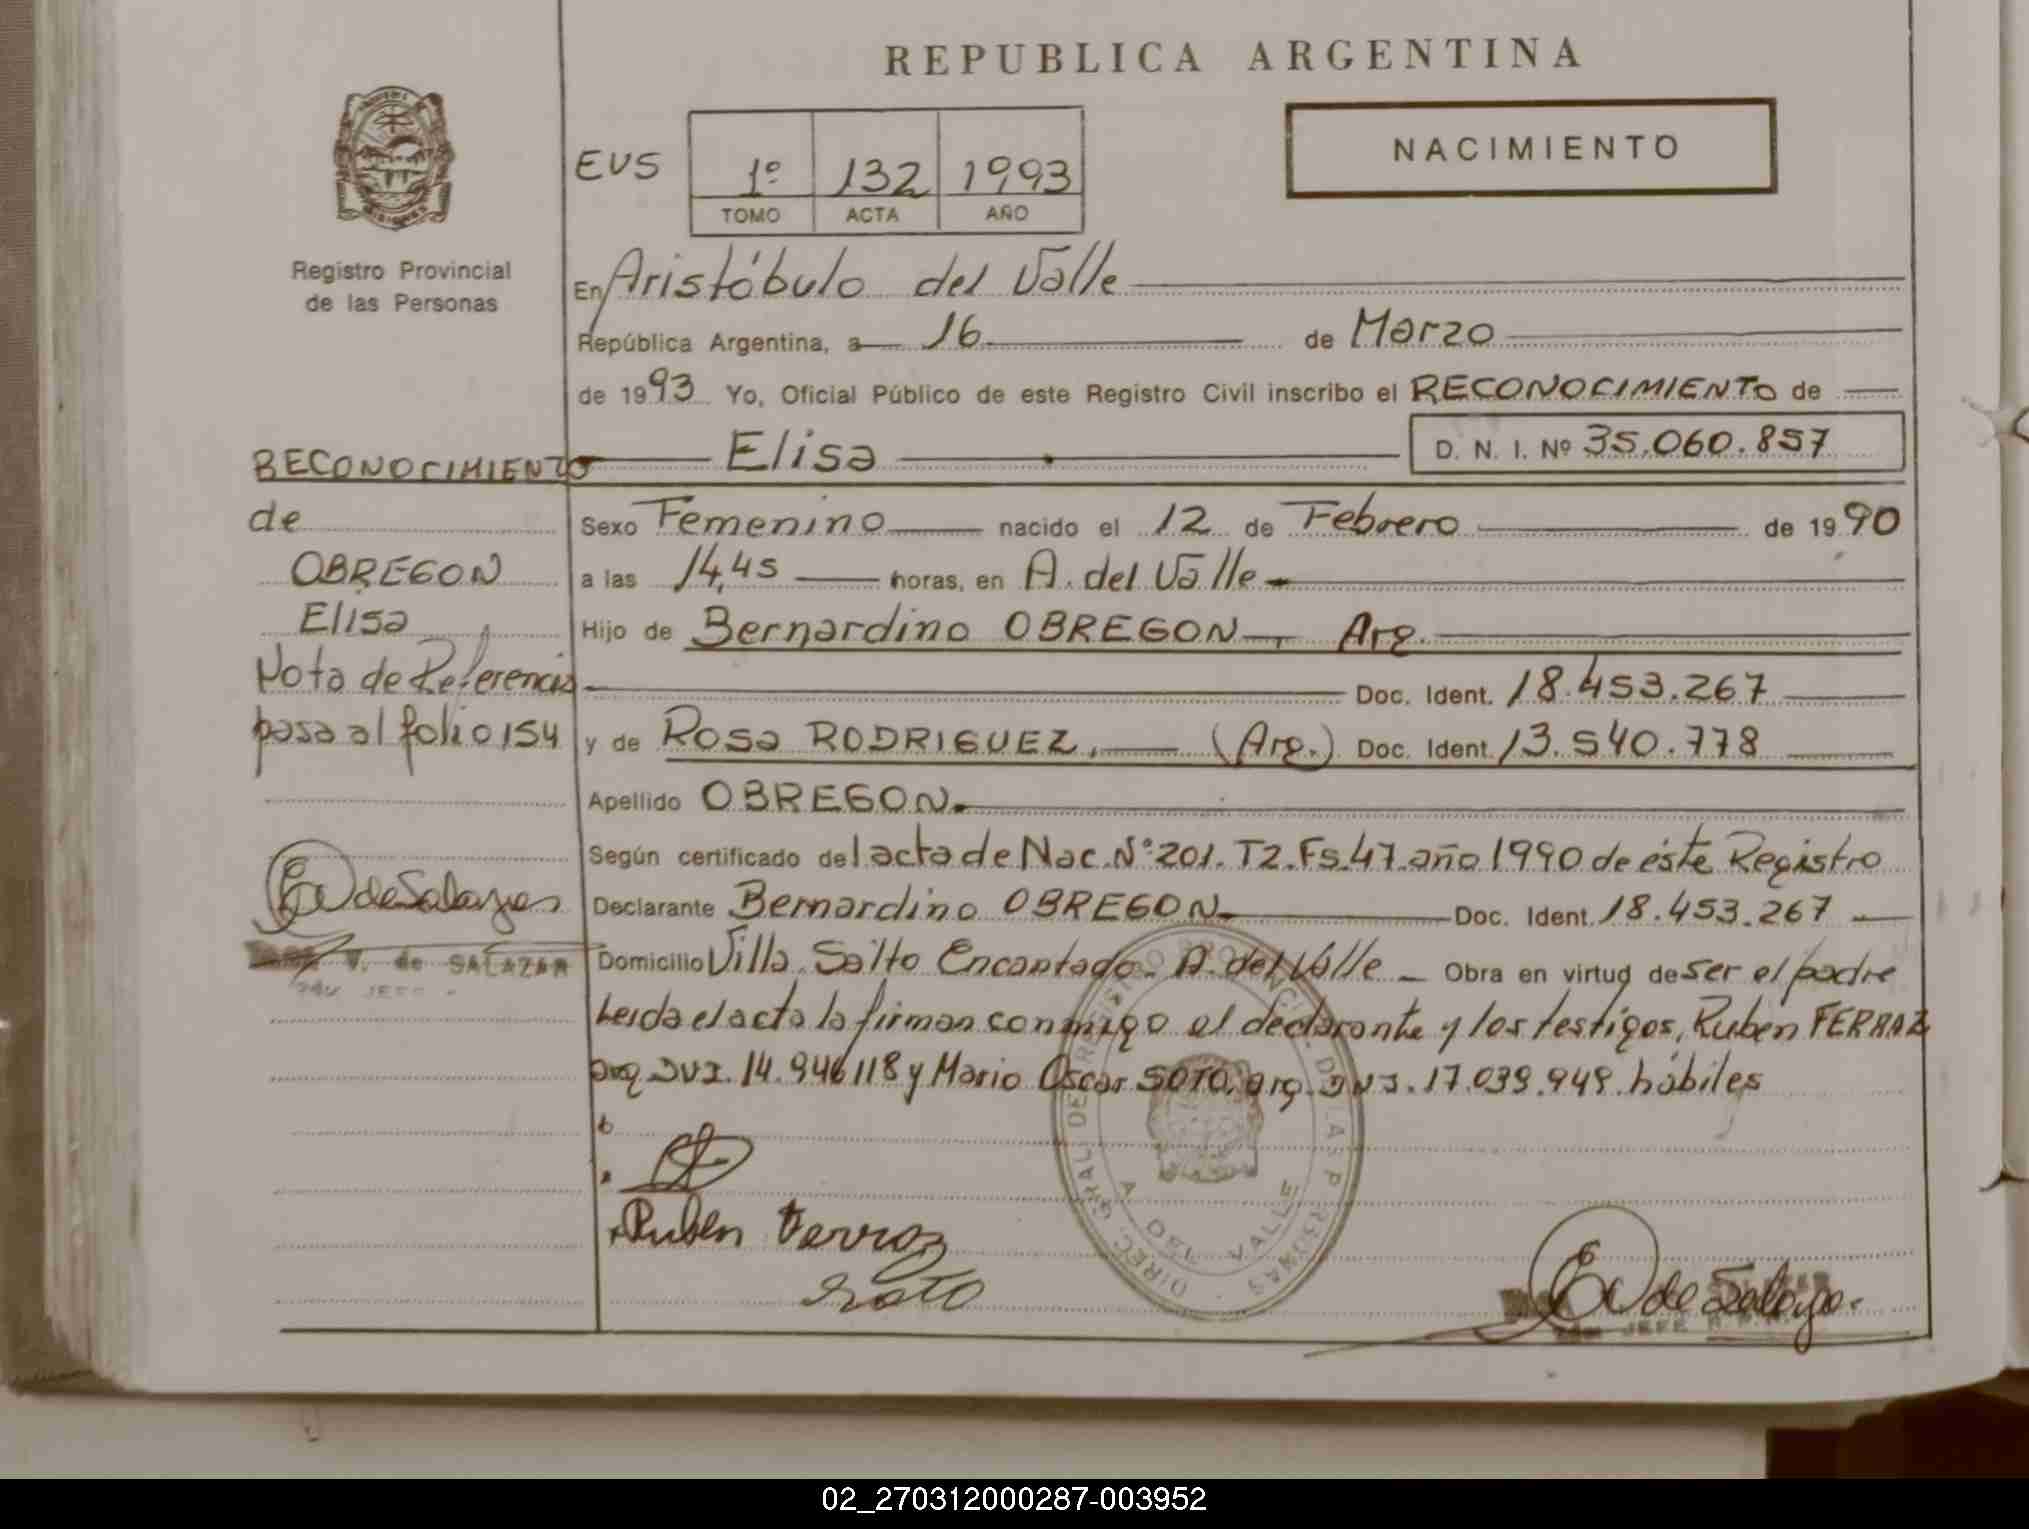 REPUBLICA ARGENTINA
NACIMIENTO
EVS 1º 132 1993
TOMO ACTA AÑO
Registro Provincial
de las Personas
En Aristóbulo del Valle
República Argentina, a 16 de Marzo
de 1993 Yo, Oficial Público de este Registro Civil inscribo el RECONOCIMIENTO de
Elisa D. N. I. Nº 35.060.857
RECONOCIMIENTO
de
OBREGON
Elisa
Nota de Referencia
pasa al folio 154
Sexo Femenino nacido el 12 de Febrero de 1990
a las 14,45 horas, en A. del Valle
Hijo de Bernardino OBREGON, Arg.
Doc. Ident. 18.453.267
y de Rosa RODRIGUEZ, (Arg.) Doc. Ident. 13.540.778
Apellido OBREGON.
Según certificado del acta de Nac. Nº 201. T2. Fs. 47. año 1990 de éste Registro
Declarante Bernardino OBREGON Doc. Ident. 18.453.267
Domicilio Villa Salto Encantado - A. del Valle - Obra en virtud de ser el padre
Leida el acta la firman conmigo el declarante y los testigos, Ruben FERRAZ
arg. DNI. 14.946118 y Mario Oscar SOTO, arg. DNI. 17.039.949. hábiles
de Salazar
V. de SALAZAR
JEFE
Ruben Ferraz
Soto
DIREC. GRAL. DEL REGISTRO PROVINCIAL DE LAS PERSONAS
A. DEL VALLE
de Salazar
JEFE
02_270312000287-003952